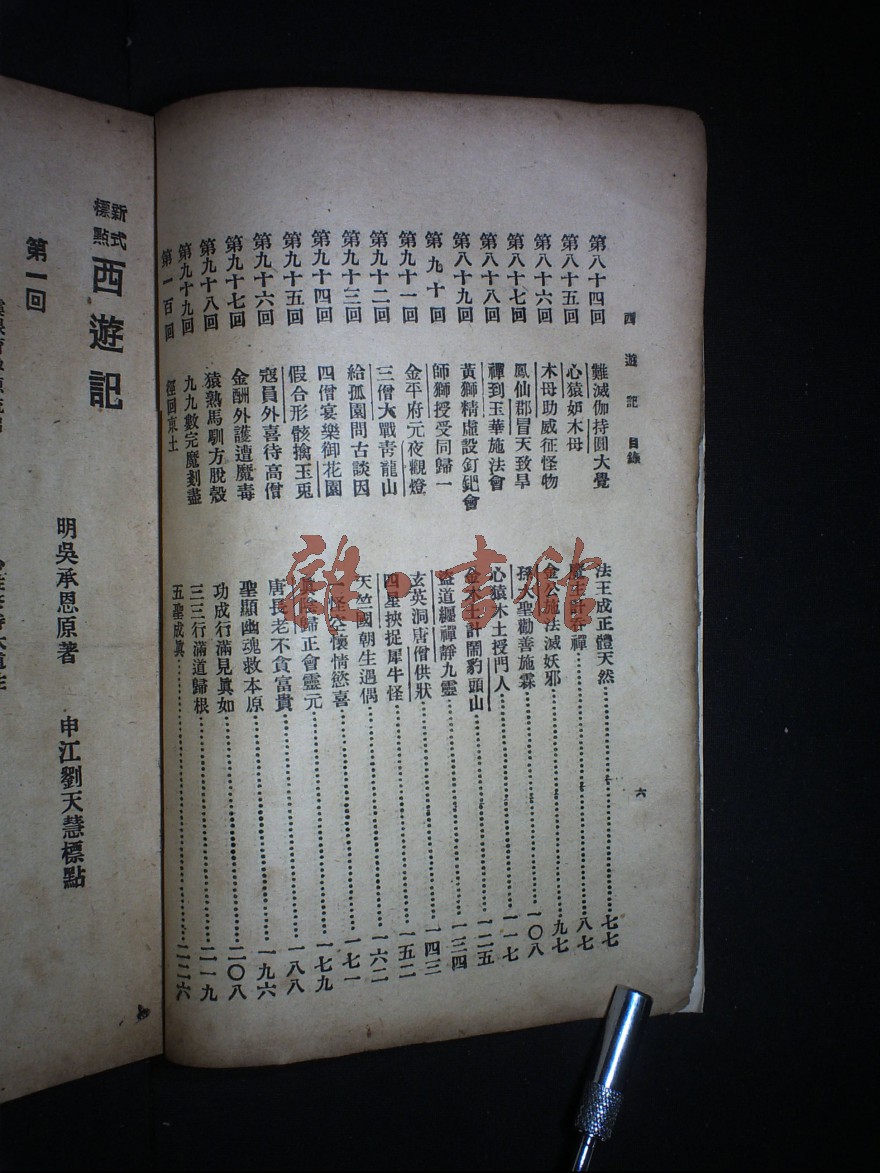 西遊記 目錄
六
第八十四回 難滅伽持圓大覺 法王成正體天然 七七
第八十五回 心猿妒木母 魔主計吞禪 八七
第八十六回 木母助威征怪物 金公施法滅妖邪 九七
第八十七回 鳳仙郡冒天致旱 孫大聖勸善施霖 一〇八
第八十八回 禪到玉華施法會 心猿木土授門人 一一七
第八十九回 黃獅精虛設釘鈀會 金木土計鬧豹頭山 一二五
第九十回 師獅授受同歸一 盜道纏禪靜九靈 一三四
第九十一回 金平府元夜觀燈 玄英洞唐僧供狀 一四三
第九十二回 三僧大戰青龍山 四星挾捉犀牛怪 一五二
第九十三回 給孤園問古談因 天竺國朝生遇偶 一六二
第九十四回 四僧宴樂御花園 一怪空懷情慾喜 一七一
第九十五回 假合形骸擒玉兎 眞陰歸正會靈元 一七九
第九十六回 寇員外喜待高僧 唐長老不貪富貴 一八八
第九十七回 金酬外護遭魔毒 聖顯幽魂救本原 一九六
第九十八回 猿熟馬馴方脫殼 功成行滿見眞如 二〇八
第九十九回 九九數完魔剗盡 三三行滿道歸根 二一九
第一百回 徑回東土 五聖成眞 二二六
新式標點 西遊記
明吳承恩原著 申江劉天慧標點
第一回
雜·書館